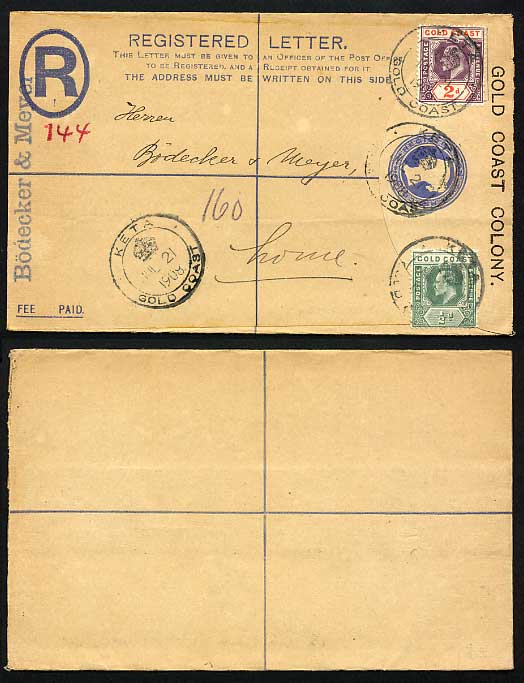 REGISTERED LETTER.
THIS LETTER MUST BE GIVEN TO AN OFFICER OF THE POST OFFI
TO BE REGISTERED, AND A RECEIPT OBTAINED FOR IT
THE ADDRESS MUST BE WRITTEN ON THIS SIDE
R
144
Bödecker & Meyer
Herren
Bödecker & Meyer,
160
home.
FEE PAID.
KETA
JUL 21
1908
GOLD COAST
GOLD COAST
POSTAGE
2d
GOLD COAST
KETA
COAST
GOLD COAST COLONY.
KETA
GOLD COAST
POSTAGE
½d